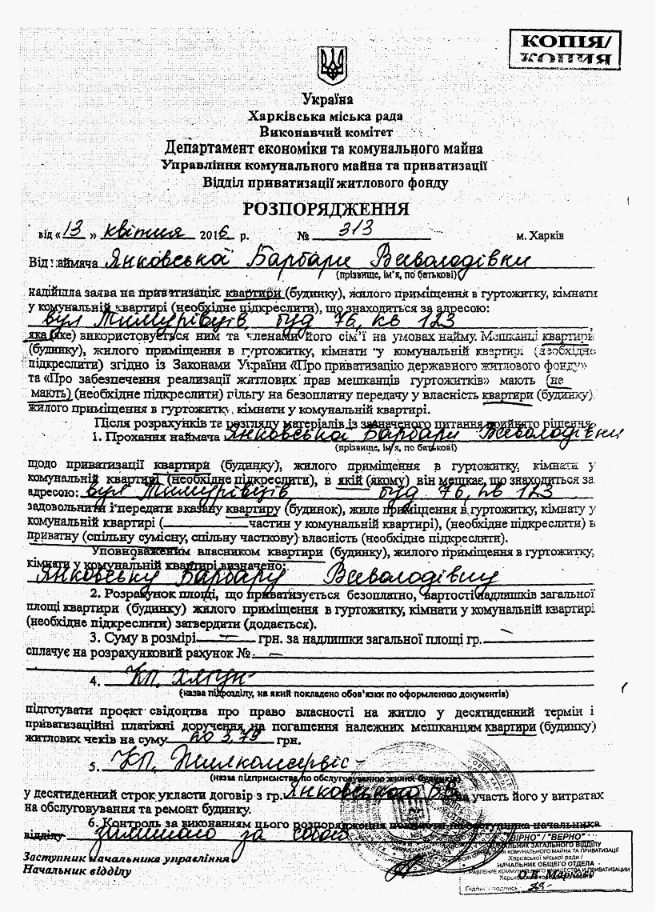 КОПІЯ/
КОПИЯ
Україна
Харківська міська рада
Виконавчий комітет
Департамент економіки та комунального майна
Управління комунального майна та приватизації
Відділ приватизації житлового фонду
РОЗПОРЯДЖЕННЯ
від «13» квітня 2016 р. № 313 м. Харків
Від наймача Янковської Барбари Всеволодівни
(прізвище, ім'я, по батькові)
надійшла заява на приватизацію квартири (будинку), жилого приміщення в гуртожитку, кімнати
у комунальній квартирі (необхідне підкреслити), що знаходиться за адресою:
вул Тимурівців, буд 76, кв 123
яка (яке) використовується ним та членами його сім'ї на умовах найму. Мешканці квартири
(будинку), жилого приміщення в гуртожитку, кімнати у комунальній квартирі (необхідне
підкреслити) згідно із Законами України «Про приватизацію державного житлового фонду»
та «Про забезпечення реалізації житлових прав мешканців гуртожитків» мають (не
мають) (необхідне підкреслити) пільгу на безоплатну передачу у власність квартири (будинку)
жилого приміщення в гуртожитку, кімнати у комунальній квартирі.
Після розрахунків та розгляду матеріалів із зазначеного питання прийнято рішення:
1. Прохання наймача Янковської Барбари Всеволодівни
(прізвище, ім'я, по батькові)
щодо приватизації квартири (будинку), жилого приміщення в гуртожитку, кімнати у
комунальній квартирі (необхідне підкреслити), в якій (якому) він мешкає, що знаходиться за
адресою: вул Тимурівців буд 76, кв 123
задовольнити і передати вказану квартиру (будинок), жиле приміщення в гуртожитку, кімнату у
комунальній квартирі ( частин у комунальній квартирі), (необхідне підкреслити) в
приватну (спільну сумісну, спільну часткову) власність (необхідне підкреслити).
Уповноваженим власником квартири (будинку), жилого приміщення в гуртожитку,
кімнати у комунальній квартирі визначено:
Янковську Барбару Всеволодівну
2. Розрахунок площі, що приватизується безоплатно, вартості надлишків загальної
площі квартири (будинку) жилого приміщення в гуртожитку, кімнати у комунальній квартирі
(необхідне підкреслити) затвердити (додається).
3. Суму в розмірі — грн. за надлишки загальної площі гр. —
сплачує на розрахунковий рахунок № —
4. КП
(назва підрозділу, на який покладено обов'язки по оформленню документів)
підготувати проект свідоцтва про право власності на житло у десятиденний термін і
приватизаційні платіжні доручення на погашення належних мешканцям квартири (будинку)
житлових чеків на суму по 3,79 грн.
5. КП „Жилкомсервіс"
(назва підприємства по обслуговуванню жилих будинків)
у десятиденний строк укласти договір з гр. Янковською Б.В. на участь його у витратах
на обслуговування та ремонт будинку.
6. Контроль за виконанням цього розпорядження начальника
відділу залишаю за собою
Заступник начальника управління
Начальник відділу
"ВІРНО" / "ВЕРНО"
НАЧАЛЬНИК ЗАГАЛЬНОГО ВІДДІЛУ
КОМУНАЛЬНОГО МАЙНА ТА ПРИВАТИЗАЦІЇ
Харківської міської ради /
НАЧАЛЬНИК ОБЩЕГО ОТДЕЛА